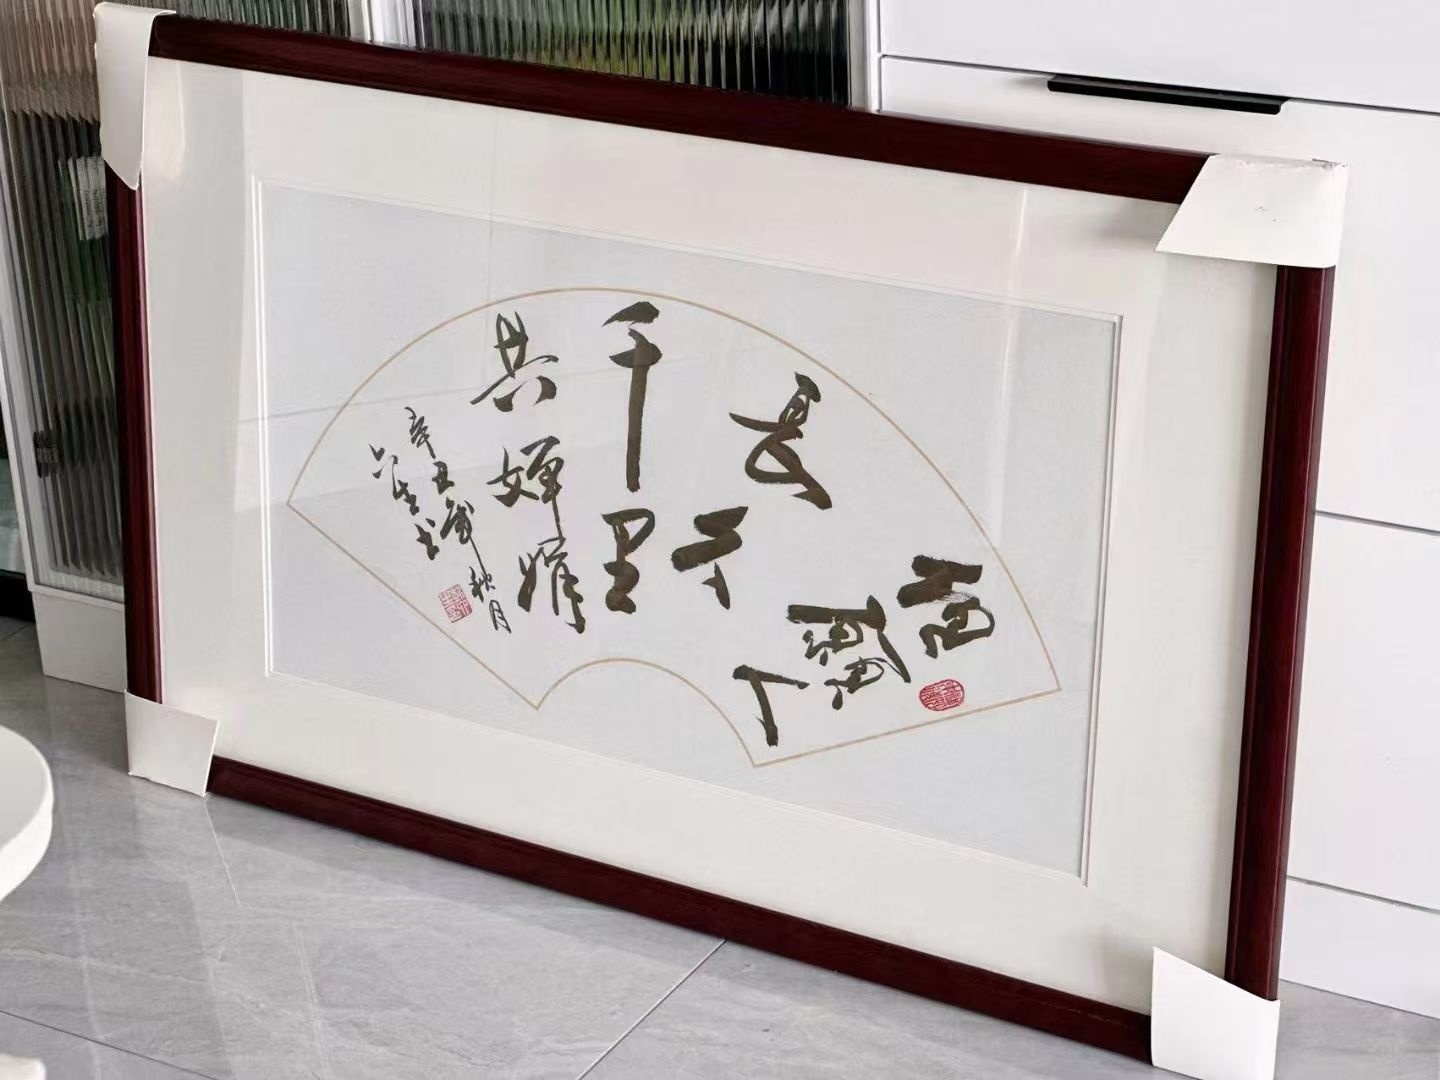 但願人
長久
千里
共婵娟
辛丑歲秋月